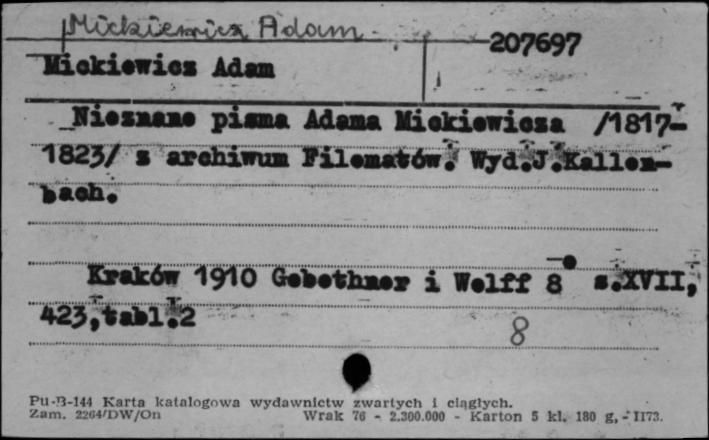 Mickiewicz Adam
207697
Mickiewicz Adam
Nieznane pisma Adama Mickiewicza /1817-
1823/ z archiwum Filomatów. Wyd.J.Kallen-
bach.
Kraków 1910 Gebethner i Wolff 8° s.XVII,
423,tabl.2
8
Pu-B-144 Karta katalogowa wydawnictw zwartych i ciągłych.
Zam. 2264/DW/On Wrak 76 - 2.300.000 - Karton 5 kl. 180 g, - II73.